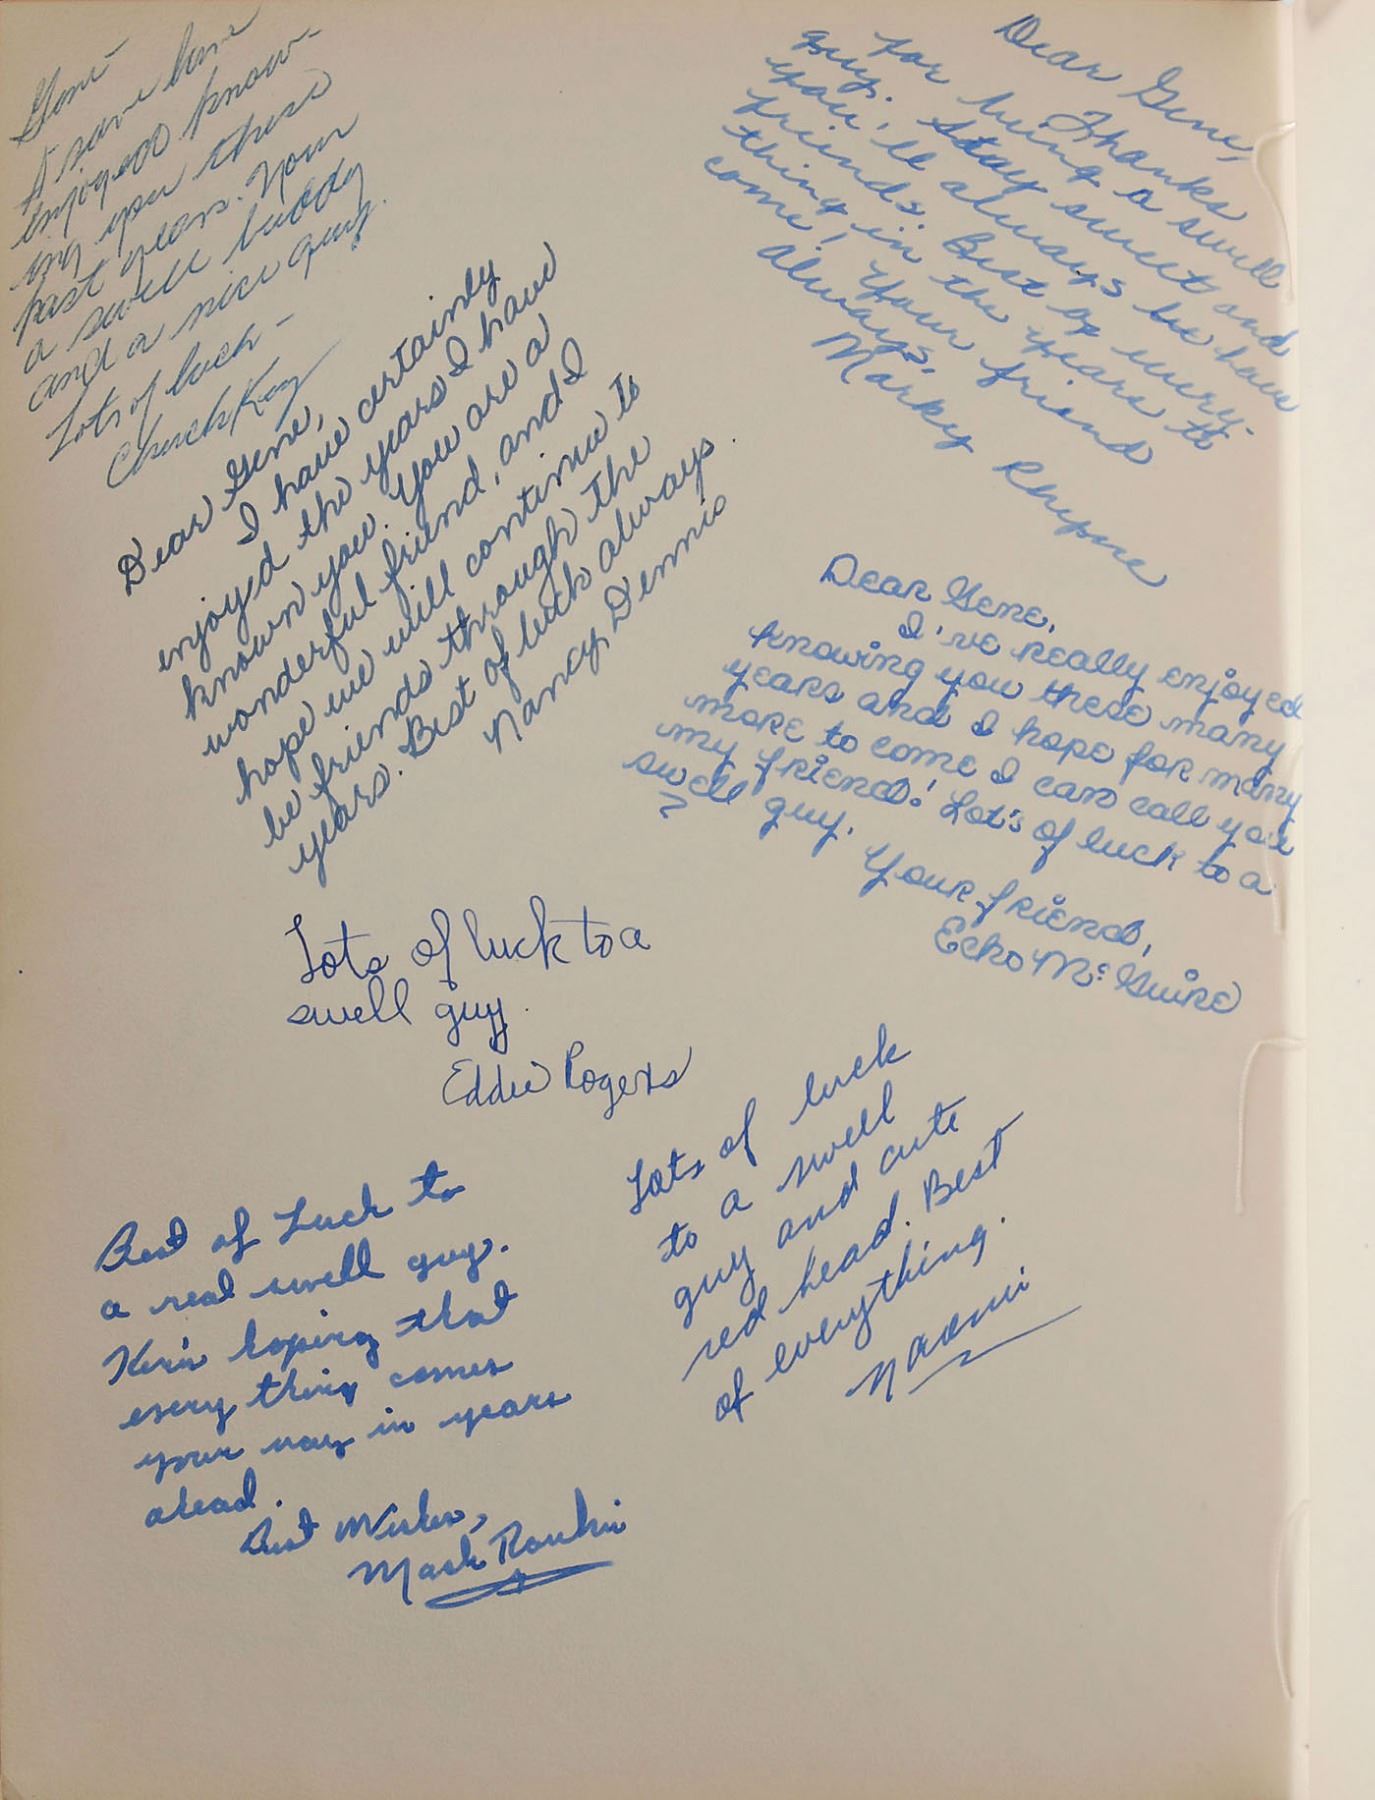 Gene -
I sure have
enjoyed know-
ing you these
past years. Your
a swell buddy
and a nice guy.
Lots of luck -
Chuck Kay
Dear Gene,
Thanks
for being a swell
guy. Stay sweet and
you'll always be have
friends. Best of every-
thing in the years to
come! Your friend
always,
Marky
Dear Gene,
I have certainly
enjoyed the years I have
known you. You are a
wonderful friend, and I
hope we will continue to
be friends through the
years. Best of luck always.
Nancy Dennis
Dear Gene,
I've really enjoyed
knowing you these many
years and I hope for many
more to come I can call you
my friend! Lot's of luck to a
swell guy.
Your friend,
Echo McGuire
Lots of luck to a
swell guy.
Eddie Rogers
Lots of luck
to a swell
guy and cute
red head. Best
of everything.
Naomi
Best of Luck to
a real swell guy.
Her's hoping that
every thing comes
your way in years
ahead.
Best Wishes,
Mack Rankin